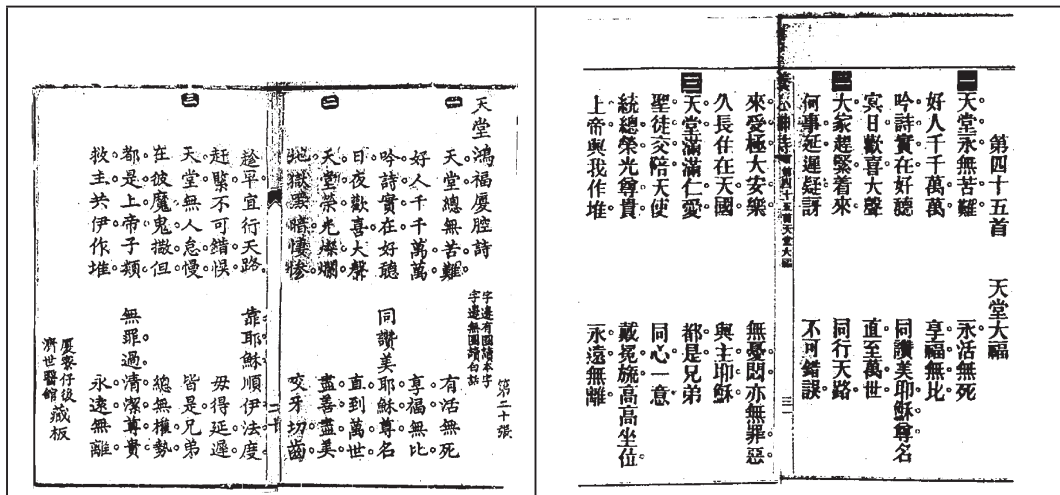 天堂鴻福廈腔詩
字邊有圈讀本字
字邊無圈讀白話
第二十張
一 天堂總無苦難。 有活無死
好人千千萬萬。 享福無比
吟詩實在好聽 同讚美耶穌尊名
日夜歡喜大聲 直到萬世
二 天堂榮光燦爛 盡善盡美
地獄黑暗悽慘 咬牙切齒
二十
趁早宜行天路 靠耶穌順伊法度
赶緊不可錯悞 毋得延遲
三 天堂無人怠慢 皆是兄弟
在彼魔鬼撒但 總無權勢
都是上帝子類 無罪過。清潔尊貴
救主共伊作堆 永遠無離
廈寮仔後
濟世醫館
藏板
第四十五首 天堂大福
一 天堂永無苦難 永活無死
好人千千萬萬 享福無比
吟詩實在好聽 同讚美耶穌尊名
冥日歡喜大聲 直至萬世
二 大家趕緊着來 同行天路
何事延遲疑訝 不可錯誤
神詩 第四十五首天堂大福 三一
來受極大安樂 無憂悶亦無罪惡
久長住在天國 與主耶穌
三 天堂滿滿仁愛 都是兄弟
聖徒交陪天使 同心一意
統總榮光尊貴 戴冕旒高高坐位
上帝與我作堆 永遠無離